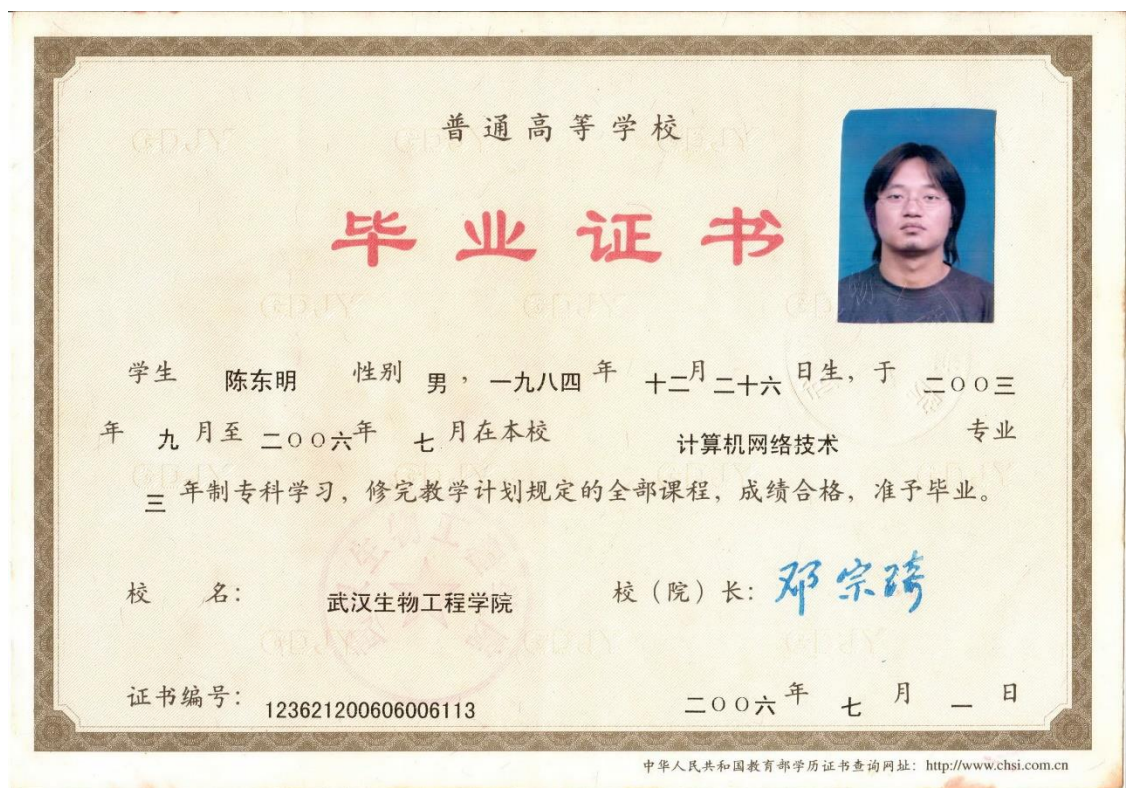 普通高等学校
毕业证书
学生 陈东明 性别 男 ，一九八四 年 十二月 二十六 日生，于 二〇〇三
年 九 月至 二〇〇六年 七 月在本校 计算机网络技术 专业
三 年制专科学习，修完教学计划规定的全部课程，成绩合格，准予毕业。
校 名： 武汉生物工程学院 校（院）长：邓宗琦
证书编号：123621200606006113 二〇〇六 年 七 月 一 日
中华人民共和国教育部学历证书查询网址：http://www.chsi.com.cn